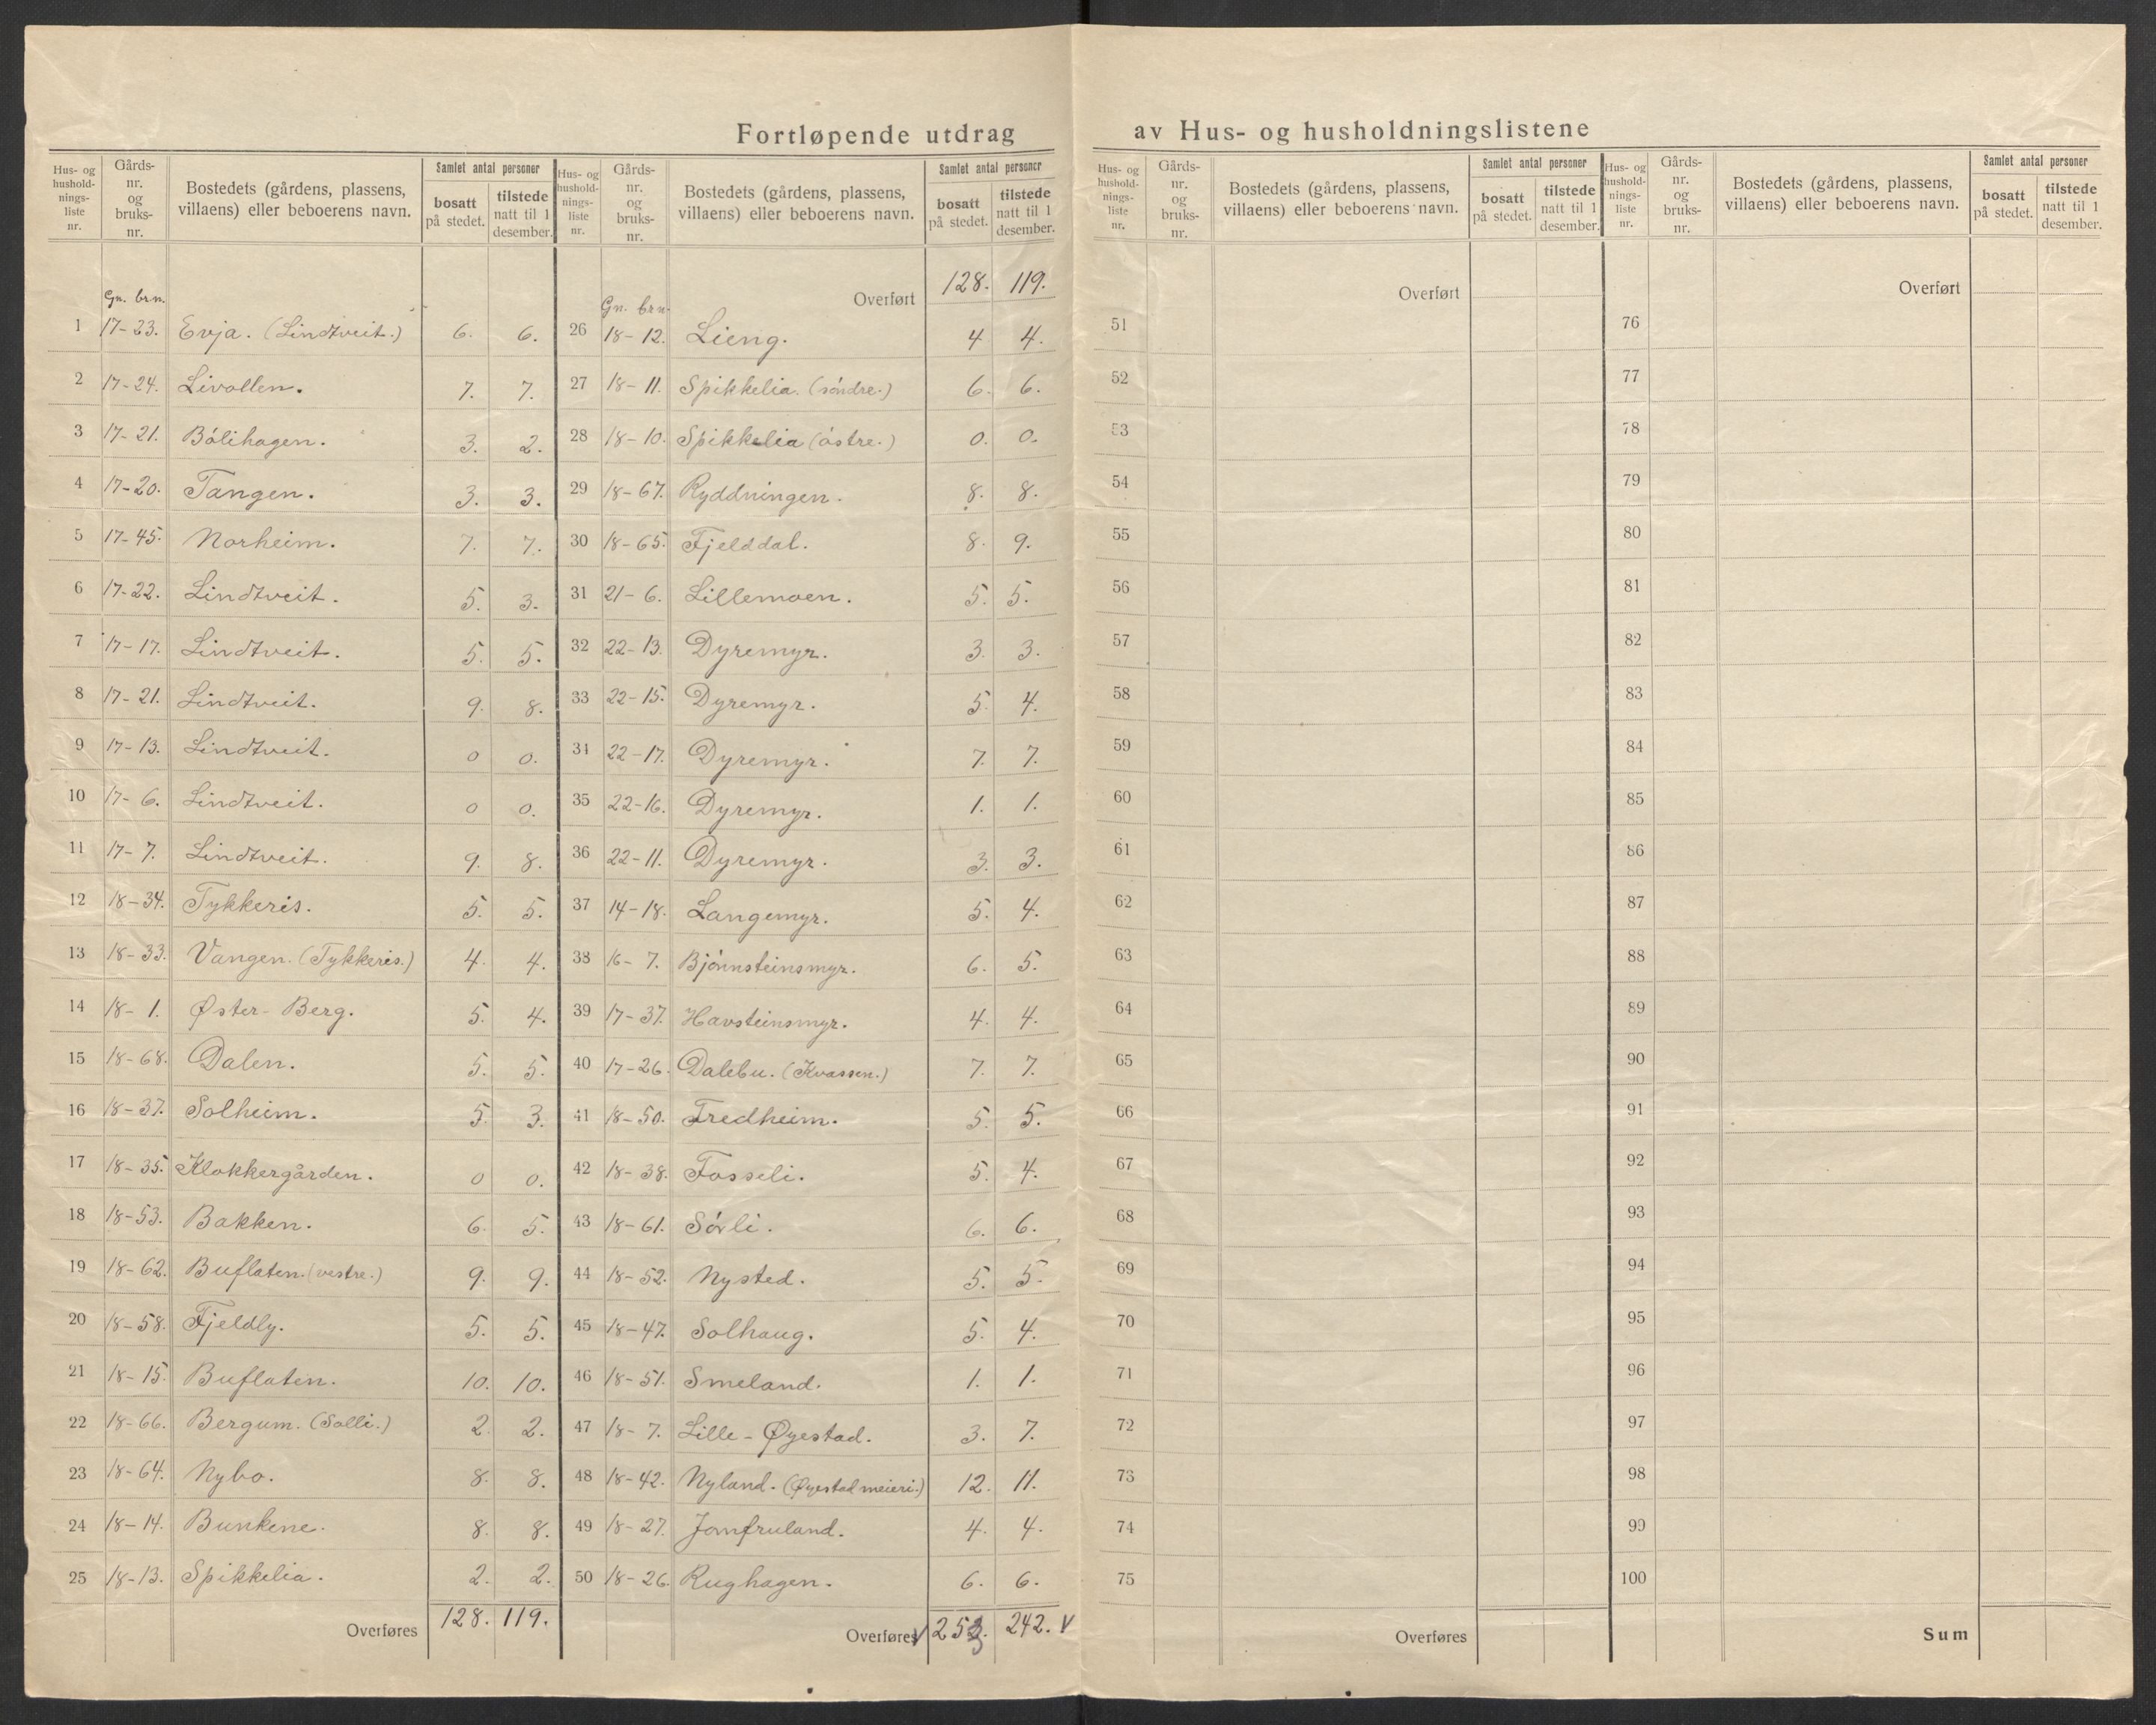 Fortløpende utdrag av Hus- og husholdningslistene
Hus- og hushold-nings-liste nr. | Gårds-nr. og bruks-nr. | Bostedets (gårdens, plassens, villaens) eller beboerens navn. | Samlet antal personer | bosatt på stedet. | tilstede natt til 1 desember.
Gn. brn.
1 17-23. Evja. (Lindtveit.) 6. 6.
2 17-24. Livollen. 7. 7.
3 17-21. Bólihagen. 3. 2.
4 17-20. Tangen. 3. 3.
5 17-45. Norheim. 7. 7.
6 17-22. Lindtveit. 5. 3.
7 17-17. Lindtveit. 5. 5.
8 17-21. Lindtveit. 9. 8.
9 17-13. Lindtveit. 0 0.
10 17-6. Lindtveit. 0 0.
11 17-7. Lindtveit. 9. 8.
12 18-34. Tykkeris. 5. 5.
13 18-33. Vangen. (Tykkeris.) 4. 4.
14 18-1. Øster-Berg. 5. 4.
15 18-68. Dalen. 5. 5.
16 18-37. Solheim. 5. 3.
17 18-35. Klokkergården. 0 0.
18 18-53. Bakken. 6. 5.
19 18-62. Buflaten. (vestre.) 9. 9.
20 18-58. Fjeldly. 5. 5.
21 18-15. Buflaten. 10. 10.
22 18-66. Bergum. (Solli.) 2. 2.
23 18-64. Nybo. 8. 8.
24 18-14. Bunkene. 8. 8.
25 18-13. Spikkelia. 2. 2.
Overføres 128. 119.
Hus- og hushold-nings-liste nr. | Gårds-nr. og bruks-nr. | Bostedets (gårdens, plassens, villaens) eller beboerens navn. | Samlet antal personer | bosatt på stedet. | tilstede natt til 1 desember.
Overført 128. 119.
Gn. brn.
26 18-12. Lieng. 4 4.
27 18-11. Spikkelia. (söndre.) 6. 6.
28 18-10. Spikkelia (óstre.) 0. 0.
29 18-67. Ryddningen. 8. 8.
30 18-65. Fjelddal. 8. 9.
31 21-6. Lillemoen. 5. 5.
32 22-13. Dyremyr. 3. 3.
33 22-15. Dyremyr. 5. 4.
34 22-17. Dyremyr. 7. 7.
35 22-16. Dyremyr. 1. 1.
36 22-11. Dyremyr. 3. 3.
37 14-18. Langemyr. 5. 4.
38 16-7. Bjónnsteinsmyr. 6. 5.
39 17-37. Havsteinsmyr. 4. 4.
40 17-26. Dalebu. (Kvassen.) 7. 7.
41 18-50. Fredheim. 5. 5.
42 18-38. Fosseli. 5. 4.
43 18-61. Sórli. 6. 6.
44 18-52. Nysted. 5. 5.
45 18-47. Solhaug. 5. 4.
46 18-51. Smeland. 1. 1.
47 18-7. Lille-Øyestad. 3. 7.
48 18-42. Nyland. (Øyestad meieri.) 12. 11.
49 18-27. Jomfruland. 4. 4.
50 18-26. Rughagen. 6. 6.
Overføres √ 253. 242. √
Hus- og hushold-nings-liste nr. | Gårds-nr. og bruks-nr. | Bostedets (gårdens, plassens, villaens) eller beboerens navn. | Samlet antal personer | bosatt på stedet. | tilstede natt til 1 desember.
Overført
51
52
53
54
55
56
57
58
59
60
61
62
63
64
65
66
67
68
69
70
71
72
73
74
75
Overføres
Hus- og hushold-nings-liste nr. | Gårds-nr. og bruks-nr. | Bostedets (gårdens, plassens, villaens) eller beboerens navn. | Samlet antal personer | bosatt på stedet. | tilstede natt til 1 desember.
Overført
76
77
78
79
80
81
82
83
84
85
86
87
88
89
90
91
92
93
94
95
96
97
98
99
100
Sum